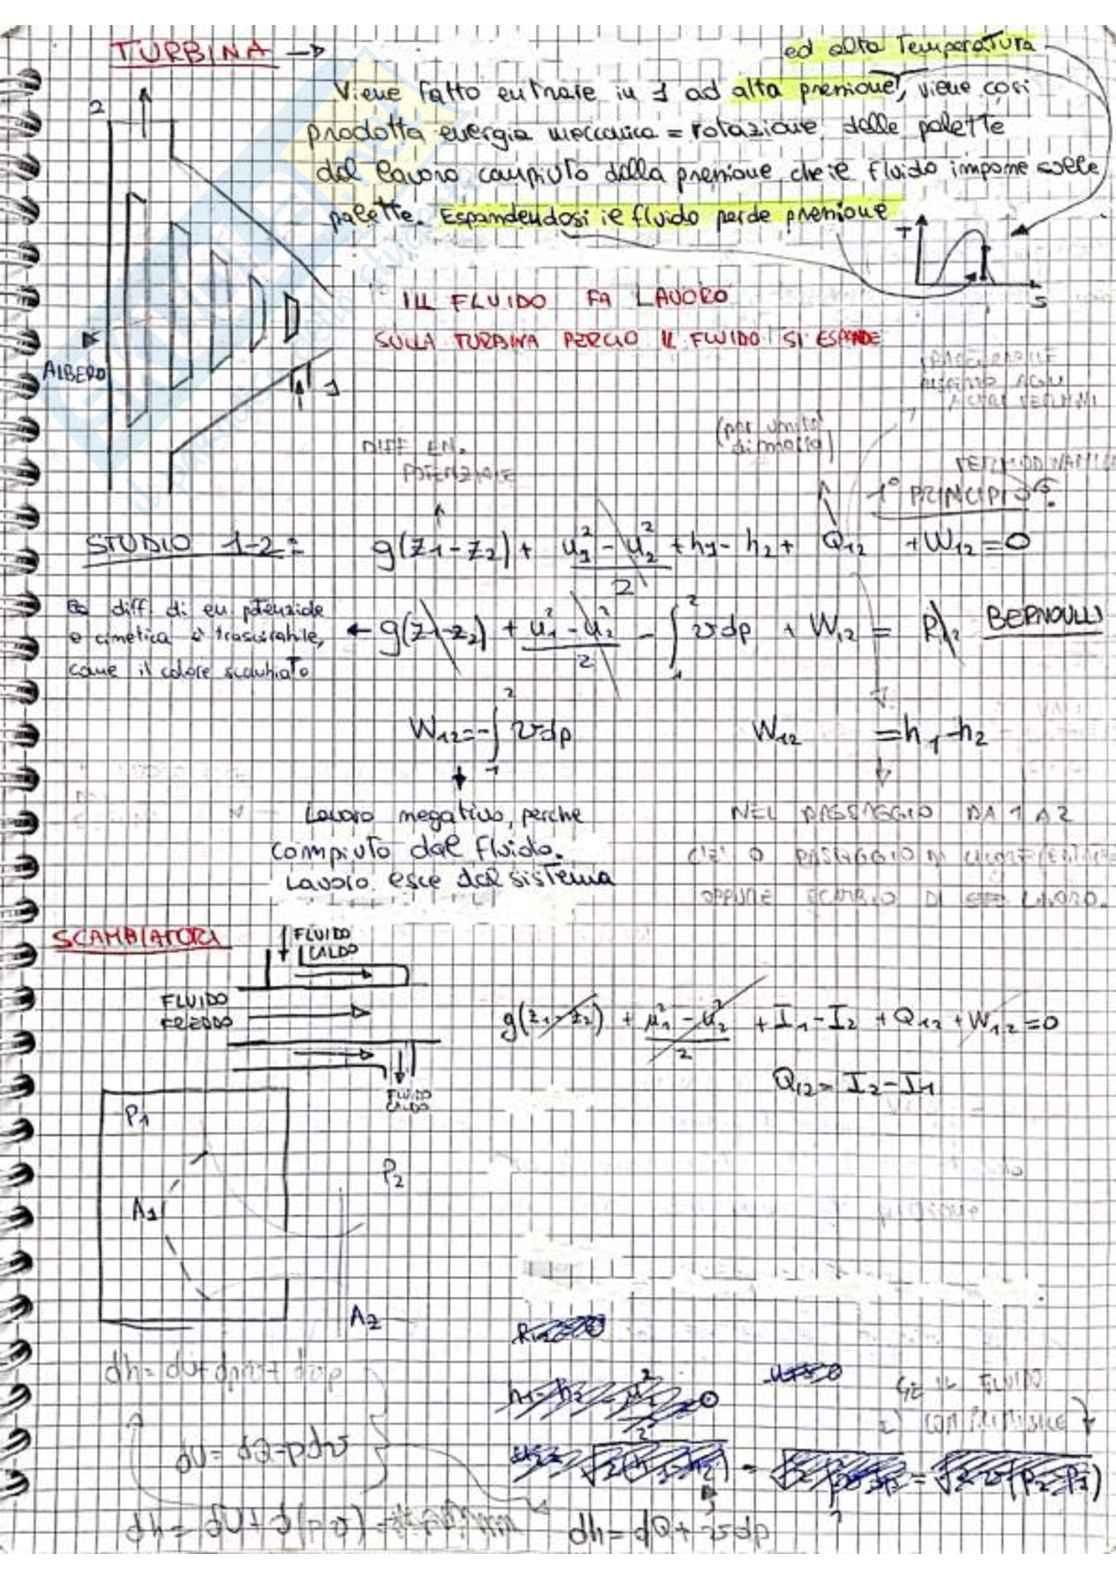 TURBINA →
ed alta Temperatura
Viene fatto entrare in 1 ad alta pressione, viene così
prodotta energia meccanica = rotazione delle palette
dal lavoro compiuto dalla pressione che il fluido impone sulle
palette. Espandendosi il fluido perde pressione
2
T
S
ILL FLUIDO FA LAVORO
SULLA TURBINA PERCIO IL FLUIDO SI ESPANDE
ALBERO
1
DIFF EN.
POTENZIALE
(per unità
di massa)
1° PRINCIPIO
STUDIO 1-2: g(z1-z2) + (u1² - u2²)/2 + h1 - h2 + Q12 + W12 = 0
diff. di en potenziale
e cinetica è trascurabile,
come il calore scambiato
← g(z1-z2) + (u1² - u2²)/2 - ∫₁² vdp + W12 = R12 BERNOULLI
W12 = -∫₁² vdp
W12 = h1-h2
Lavoro negativo, perche
compiuto dal fluido.
Lavoro esce dal sistema
NEL PASSAGGIO DA 1 A 2
OPPURE SCAMBIO DI LAVORO.
SCAMBIATORI
FLUIDO
CALDO
FLUIDO
FREDDO
FLUIDO
CALDO
g(z1-z2) + (u1² - u2²)/2 + I1-I2 + Q12 + W12 = 0
Q12 = I2-I1
P1
P2
A1
A2
SE IL FLUIDO
dU = dQ-pdv
dh = dQ + vdp